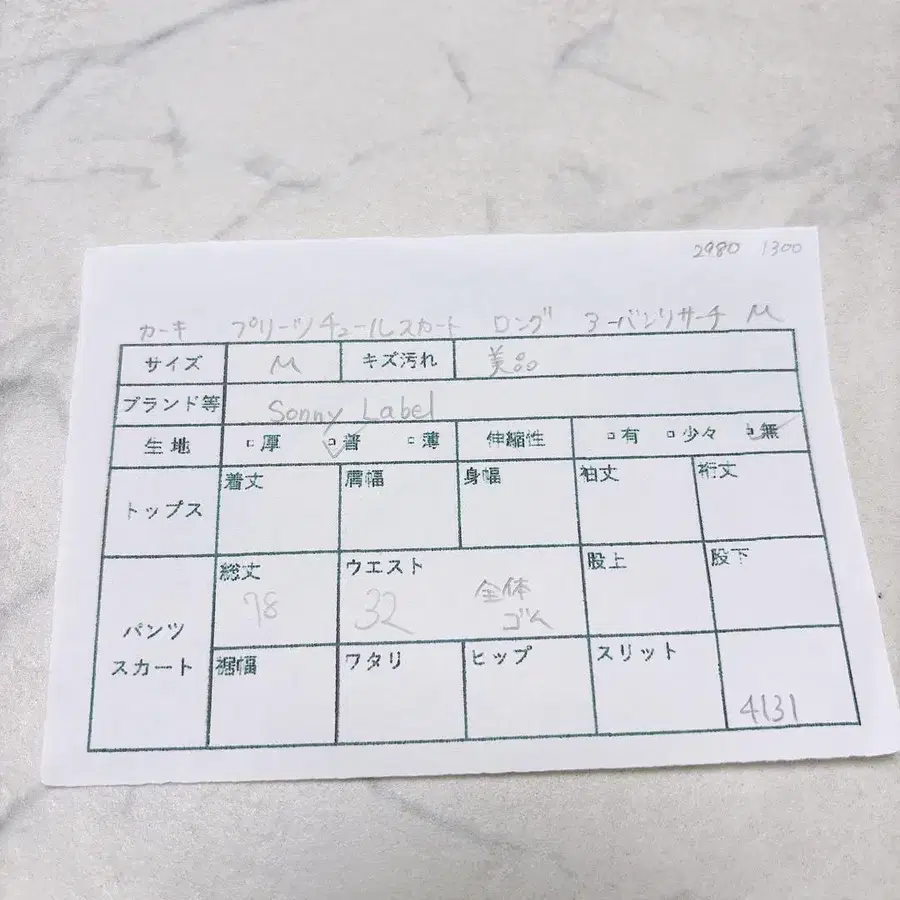 2980 1300
カーキ プリーツチュールスカート ロング アーバンリサーチ M
サイズ M キズ汚れ 美品
ブランド等 Sonny Label
生地 □厚 □普 □薄 伸縮性 □有 □少々 □無
トップス 着丈 肩幅 身幅 袖丈 裄丈
パンツ スカート 総丈 78 ウエスト 32 全体 ゴム 股上 股下
裾幅 ワタリ ヒップ スリット 4131